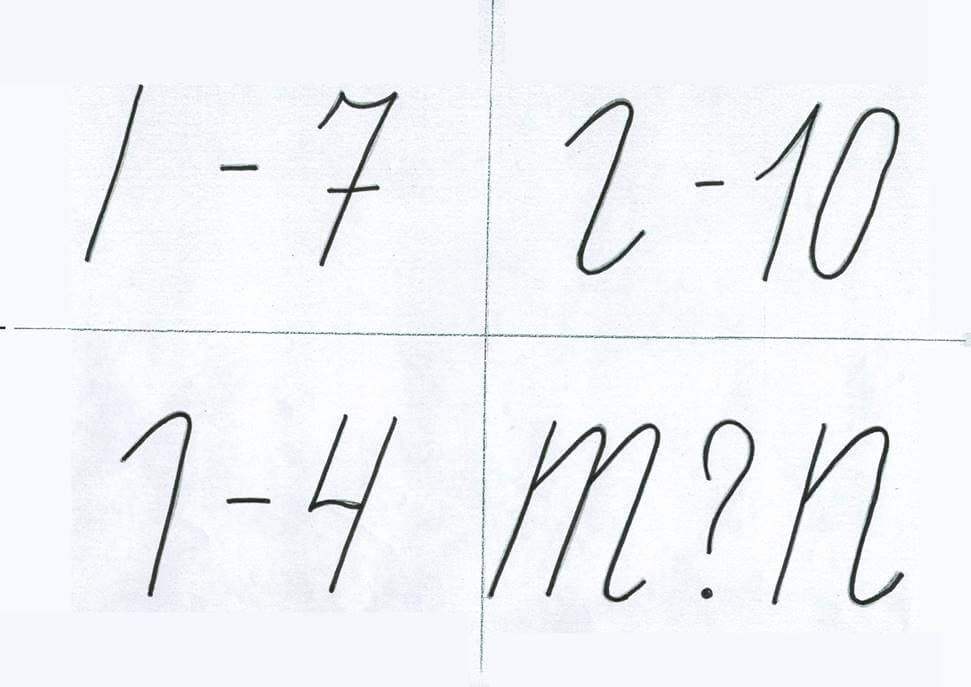 / - 7 
2 - 10
1 - 4
m ? n